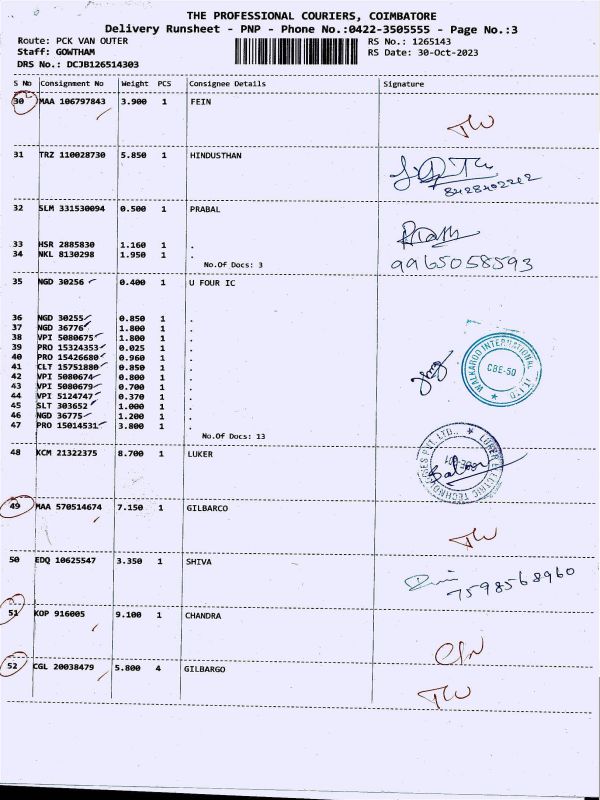 THE PROFESSIONAL COURIERS, COIMBATORE
Delivery Runsheet - PNP - Phone No.:0422-3505555 - Page No.:3
Route: PCK VAN OUTER RS No.: 1265143
Staff: GOWTHAM RS Date: 30-Oct-2023
DRS No.: DCJB126514303
S No Consignment No Weight PCS Consignee Details Signature
30 MAA 106797843 3.900 1 FEIN
31 TRZ 110028730 5.850 1 HINDUSTHAN
8428402242
32 SLM 331530094 0.500 1 PRABAL
33 HSR 2885830 1.160 1 .
34 NKL 8130298 1.950 1 .
No.Of Docs: 3 9965058593
35 NGD 30256 0.400 1 U FOUR IC
36 NGD 30255 0.850 1 .
37 NGD 36776 1.800 1 .
38 VPI 5080675 1.800 1 .
39 PRO 15324353 0.025 1 .
40 PRO 15426680 0.960 1 .
41 CLT 15751880 0.850 1 .
42 VPI 5080674 0.800 1 .
43 VPI 5080679 0.700 1 .
44 VPI 5124747 0.370 1 .
45 SLT 303652 1.000 1 .
46 NGD 36775 1.200 1 .
47 PRO 15014531 3.800 1 .
No.Of Docs: 13
WALKAROO INTERNATIONAL
CBE-50
48 KCM 21322375 8.700 1 LUKER
LUKER ELECTRIC TECHNOLOGIES PVT. LTD.,
49 MAA 570514674 7.150 1 GILBARCO
50 EDQ 10625547 3.350 1 SHIVA
7598568960
51 KOP 916005 9.100 1 CHANDRA
52 CGL 20038479 5.800 4 GILBARGO